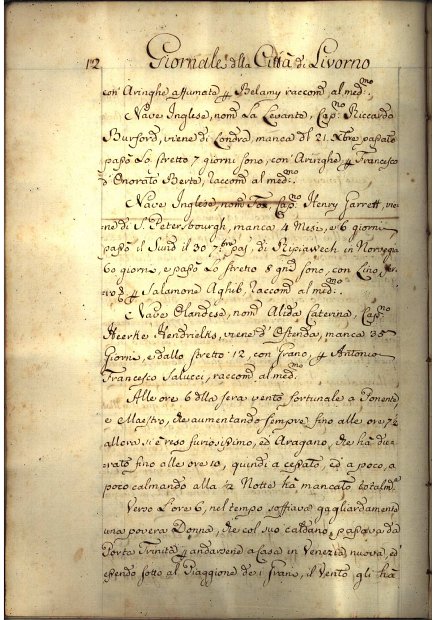 12 Giornale della Città di Livorno
con Aringhe affumate p Belamy raccom al med:mo,
Nave Inglese, nom La Levante, Cap:no Riccardo
Burford, viene di Londra, manca dl 21. Xbre, passato
passò Lo stretto 7 giorni sono, con Aringhe p Francesco
d'Onorato Berte, raccom al med:mo,
Nave Inglese, nom Fox, Cap:no Henry Garrett, vie-
ne di S. Petersbourgh, manca 4 Mesi, e 6 giorni
passò il Sund il 30 7bre pas: di in Norvegia
60 giorni, e passò Lo stretto 8 gni sono, con Lino, fer-
ro & p Salamone Aghib, raccom al med:mo,
Nave Olandese, nom Alida Caterina, Cap:no
Heerke Hendrielks, viene d'Ostenda, manca 35
Giorni, e dallo stretto 12, con Grano, p Antonio
Francesco Salucci, raccom al med:mo
Alle ore 6 dlla sera vento fortunale a Ponente,
e Maestro, che aumentando sempre fino alle ore 7½
allora si è reso furiosissimo, ed Aragano, che ha du-
rato fino alle ore 10, quindi a cessato, ed a poco, a
poco calmando alla ½ Notte ha mancato totalm:e
Verso L'ore 6, nel tempo soffiava gagliardamente
una povera Donna, che col suo caldano, passava da
Porta Trinità p andarsene a Casa in Venezia nuova, ed
essendo sotto al Piaggione de i Grani, il Vento, gli ha